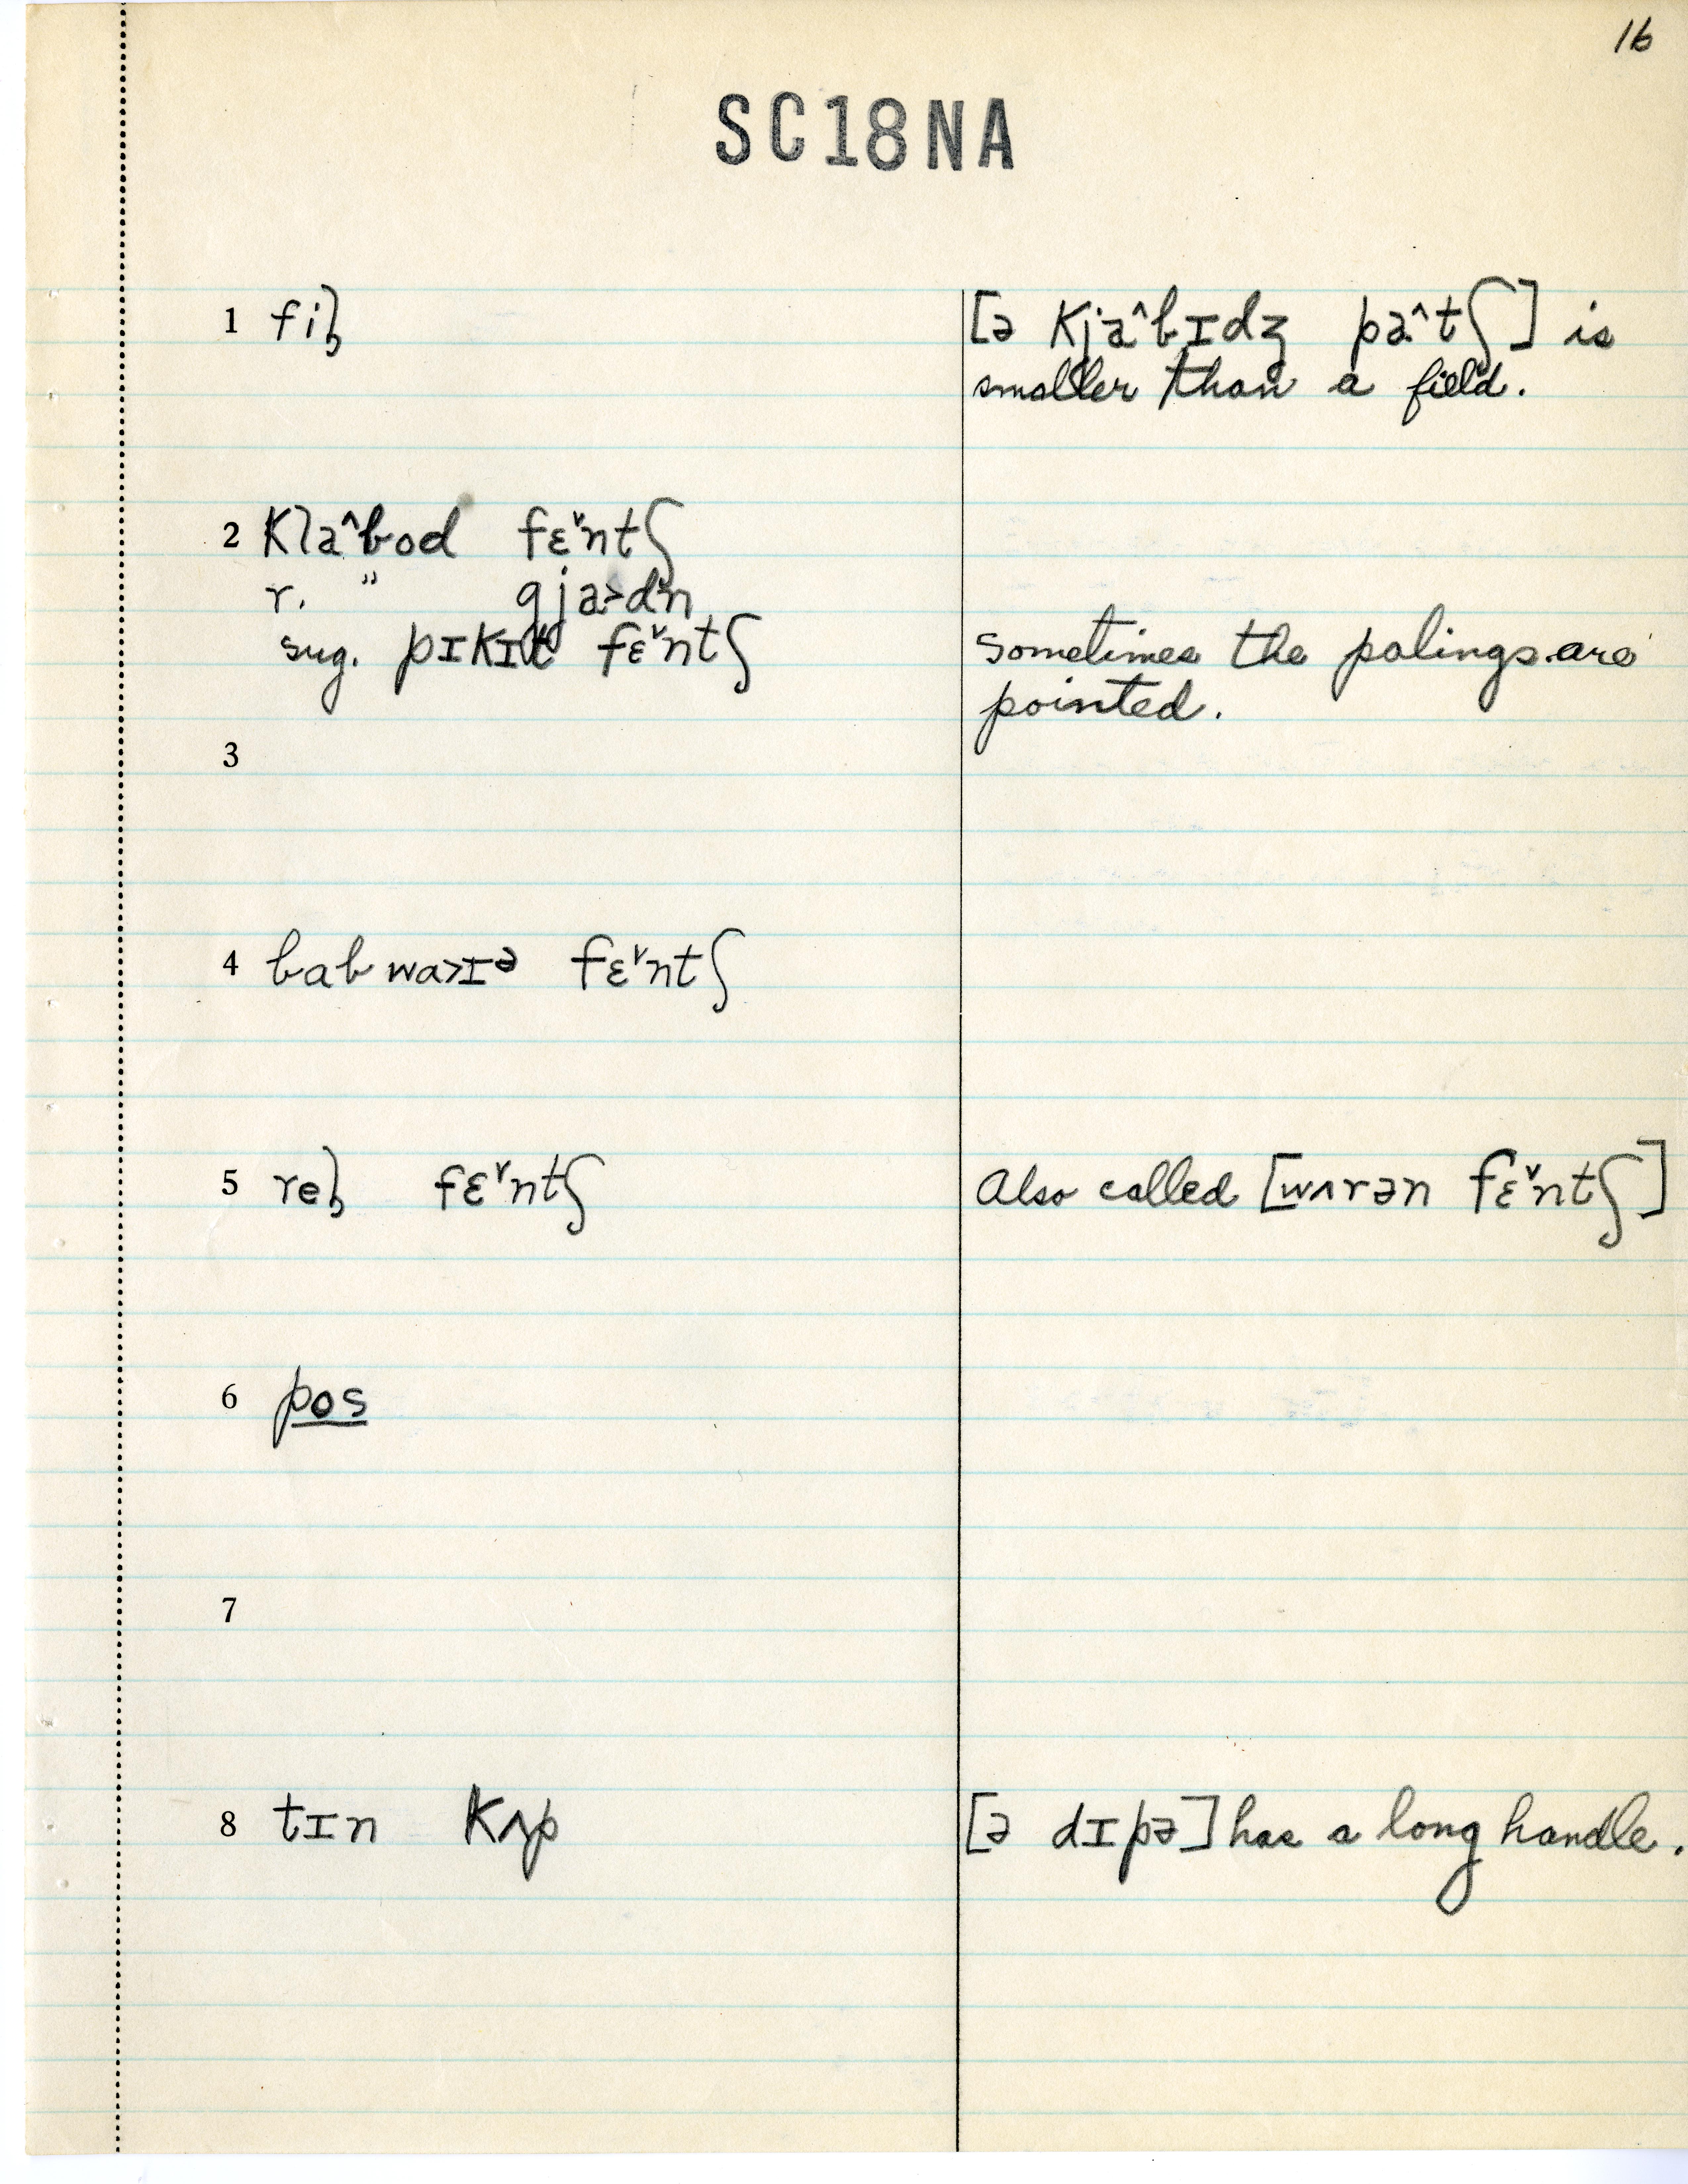 16
SC18NA
1 fiɫ̡ [ə kjaˆbɪdʒ paˆtʃ] is
smaller than a field.
2 klaˆbod fɛˇntʃ
r. " gja˃dn̩
sug. pɪkɪt fɛˇntʃ sometimes the palings are
pointed.
3
4 babwa˃ɪᵊ fɛˇntʃ
5 reɫ fɛˇntʃ Also called [wʌrən fɛˇntʃ]
6 pos
7
8 tɪn kʌp [ə dɪpə] has a long handle.